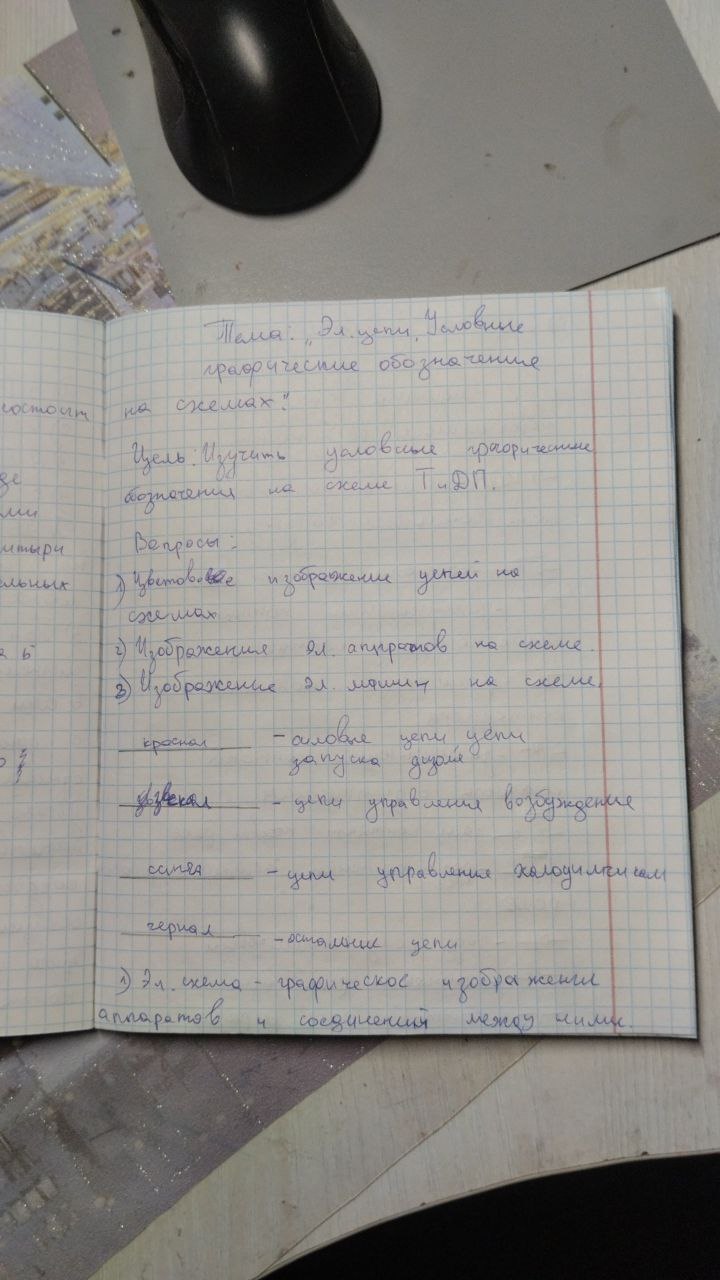 Тема: „Эл. цепи, Условные
графические обозначения
на схемах."
Цель: Изучить условные графические
обозначения на схеме ТиДП.
Вопросы:
1) Цветовое изображение цепей на
схемах
2) Изображения эл. аппаратов на схеме.
3) Изображение эл. машин на схеме.
красная - силовые цепи цепи
запуска дизеля
- цепи управления возбуждение
синяя - цепи управления холодильником
черная - остальные цепи
1) Эл. схема - графическое изображения
аппаратов и соединений между ними.
состоит
де
ми
штыри
ельных
а 5